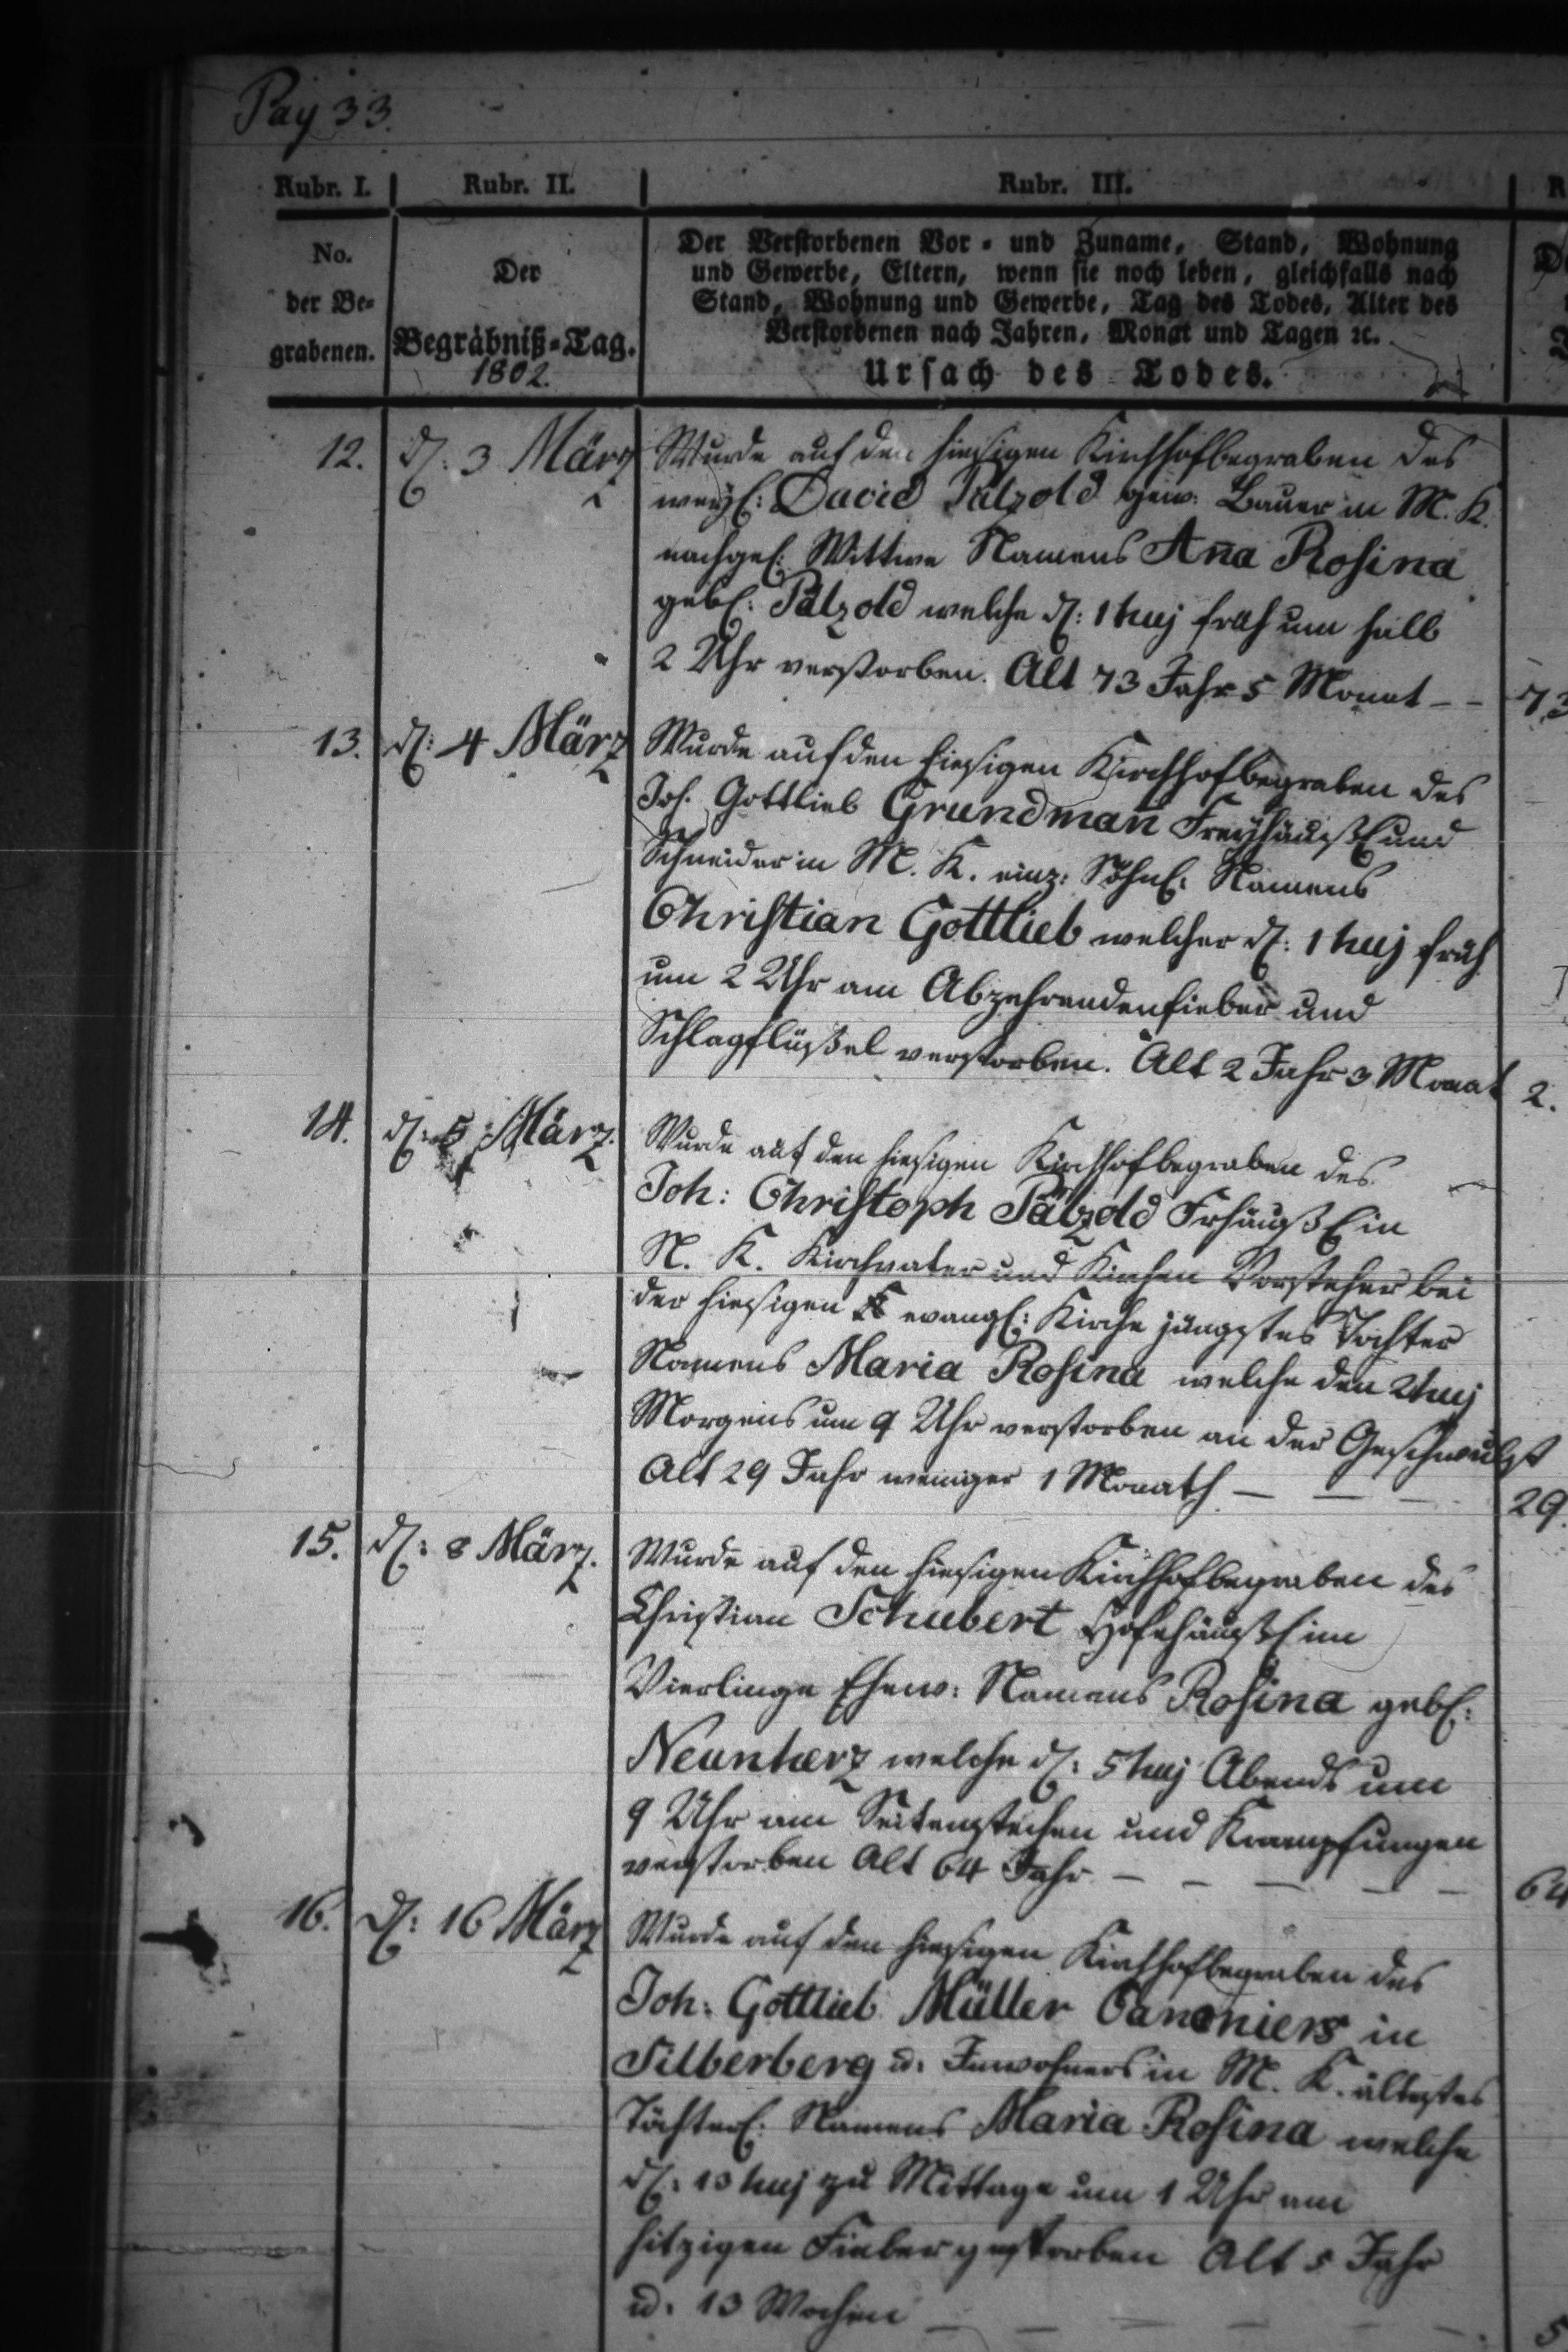 Pag 33.
Rubr. I. Rubr. II. Rubr. III.
No.
der Be-
grabenen.
Der
Begräbniß-Tag.
1802.
Der Verstorbenen Vor- und Zuname, Stand, Wohnung
und Gewerbe, Eltern, wenn sie noch leben, gleichfalls nach
Stand, Wohnung und Gewerbe, Tag des Todes, Alter des
Verstorbenen nach Jahren, Monat und Tagen ꝛc.
Ursach des Todes.
12. d: 3 März Wurde auf den hiesigen Kirchhof begraben des
weyl: David Pätzold gew: Bauer in M. K.
nachgel: Wittwe Namens Anna Rosina
gebl: Pätzold welche d: 1 huj früh um halb
2 Uhr verstorben. Alt 73 Jahr 5 Monat - - 73
13. d: 4 März Wurde auf den hiesigen Kirchhof begraben des
Joh. Gottlieb Grundmañ Freyhäußl und
Schneider in M. K. einz: Söhnl: Namens
Christian Gottlieb welcher d: 1 huj früh
um 2 Uhr am Abzehrenden fieber und
Schlagflüßel verstorben. Alt 2 Jahr 3 Monat 2.
14. d: 5 März. Wurde auf den hiesigen Kirchhof begraben des
Joh: Christoph Pätzold Frhäußl in
N. K. Kirchvater und Kirchen Vorsteher bei
der hiesigen evangl: Kirche jüngstes Tochter
Namens Maria Rosina welche den 2 huj
Morgens um 9 Uhr verstorben an der Geschwulst
Alt 29 Jahr weniger 1 Monath — — — 29.
15. d: 8 März. Wurde auf den hiesigen Kirchhof begraben des
Christian Schubert Hofehäußl im
Vierlinge Ehew: Namens Rosina gebl:
Neunherz welche d: 5 huj Abends um
9 Uhr am Seitenstechen und Krampfungen
verstorben Alt 64 Jahr — — — — — 64
16. d: 16 März Wurde auf den hiesigen Kirchhof begraben des
Joh: Gottlieb Müller Canoniers in
Silberberg u. Inwohners in M. K. ältestes
Töchterl: Namens Maria Rosina welche
d: 13 huj zu Mittage um 1 Uhr am
hitzigen Fieber gestorben Alt 5 Jahr
u. 13 Wochen — — — — — 5